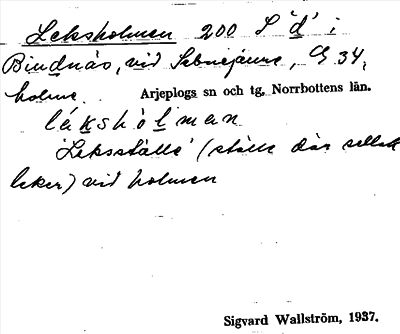 Leksholmen 200 S 'd' i
Bindnäs, vid Sebnejaure, G 34,
holme. Arjeplogs sn och tg, Norrbottens län.
lá̀ksho̊lman
'Leksställe' (ställe där
leker) vid holmen
Sigvard Wallström, 1937.